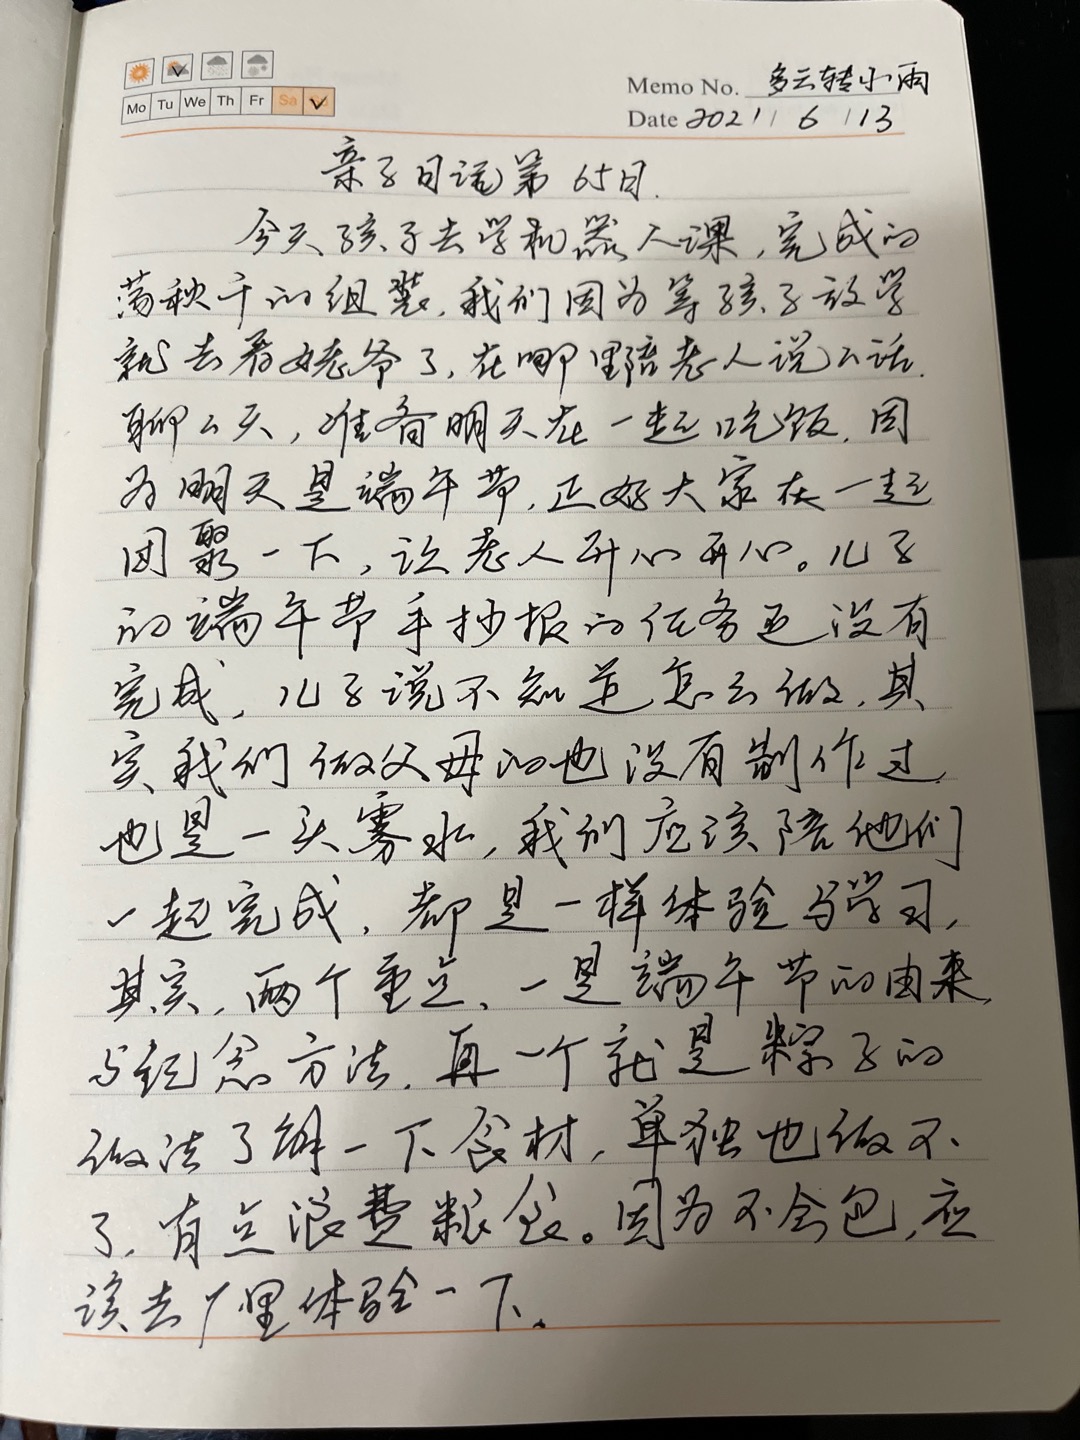 Mo Tu We Th Fr Sa
Memo No. 多云转小雨
Date 2021 / 6 / 13
亲子日记第65日.
今天孩子去学机器人课,完成的
荡秋千的组装,我们因为等孩子放学
就去看姥爷了,在哪里陪老人说么话.
聊么天,准备明天在一起吃饭,因
为明天是端午节,正好大家在一起
团聚一下,让老人开心开心。儿子
的端午节手抄报的任务还没有
完成,儿子说不知道怎么做,其
实我们做父母的也没有制作过,
也是一头雾水,我们应该陪他们
一起完成,都是一样体验与学习,
其实,两个重点、一是端午节的由来,
与纪念方法,再一个就是粽子的
做法了解一下食材,单独也做不
了,有点浪费粮食。因为不会包,应
该去厂里体验一下.